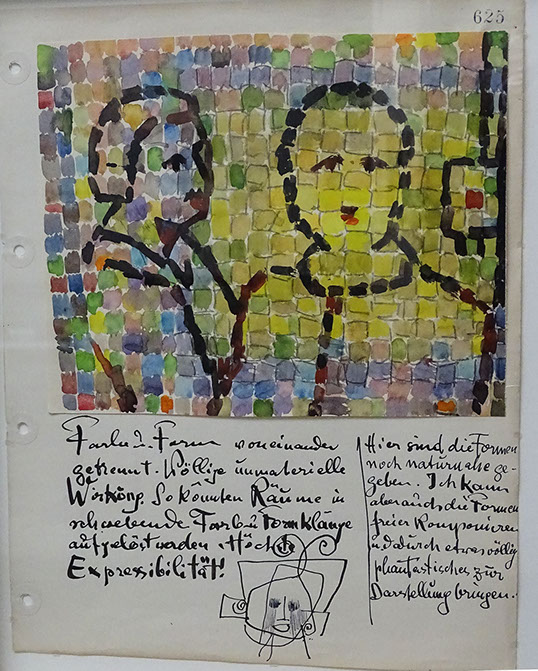 625
Farbe u. Form voneinander
getrennt. Völlige unmaterielle
Wirkung. So könnten Räume in
schwebende Farb u Formklänge
aufgelöst werden. Höchste
Expressibilität!
Hier sind die Formen
noch naturnahe ge-
geben. Ich kann
aber auch die Formen
freier komponieren
u dadurch etwas völlig
phantastisches zur
Darstellung bringen.